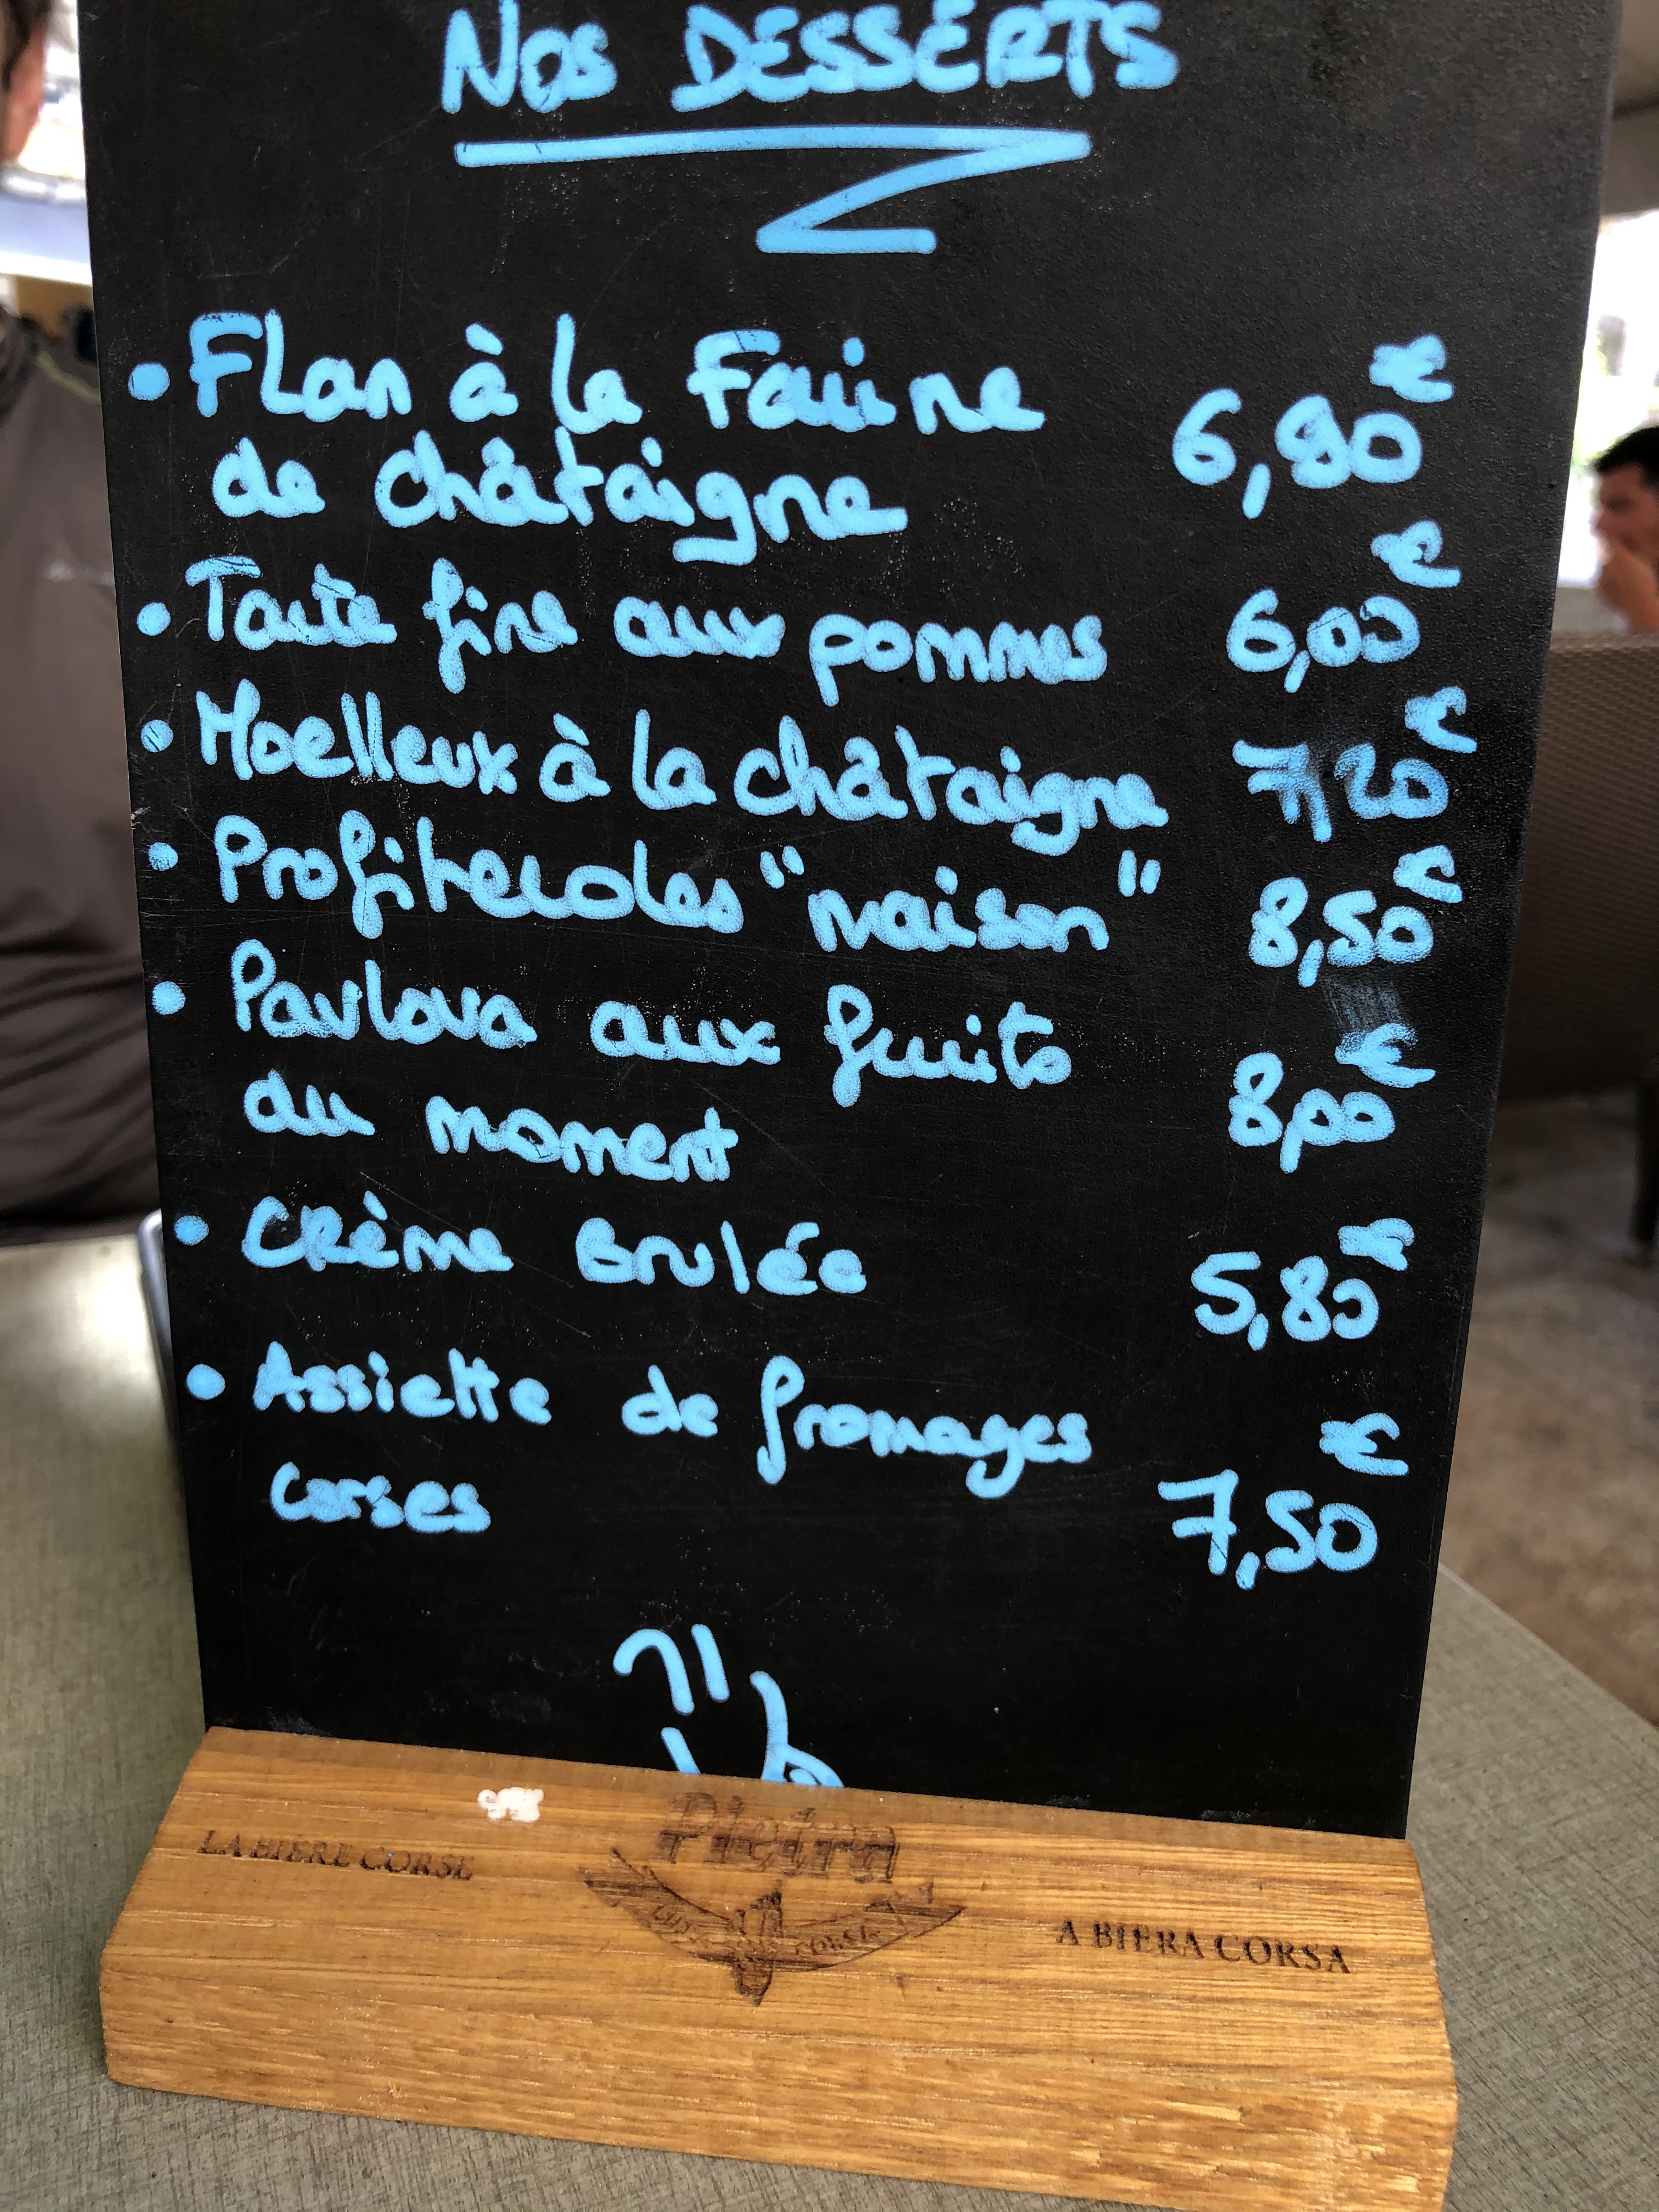 Nos DESSERTS
• Flan à la Farine
de châtaigne 6,90€
• Tarte fine aux pommes 6,00€
• Moelleux à la châtaigne 7,20€
• Profiteroles "maison" 8,50€
• Pavlova aux fruits
du moment 8,00€
• Crème Brulée 5,80€
• Assiette de fromages
corses 7,50€
Pietra
LA BIÈRE CORSE
CORSA
A BIERA CORSA